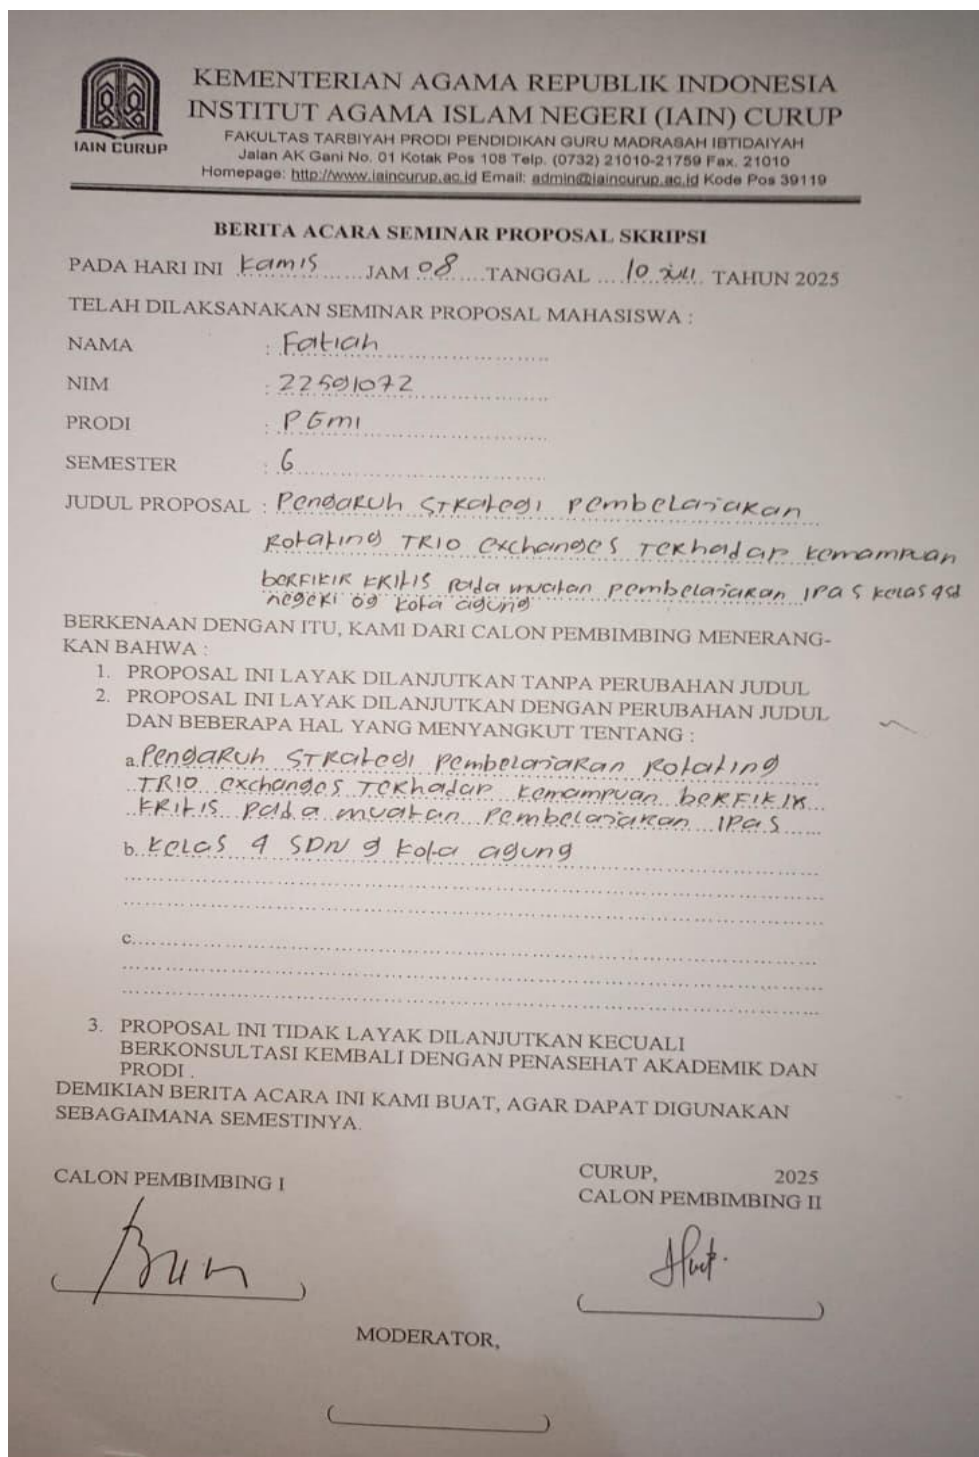 IAIN CURUP
KEMENTERIAN AGAMA REPUBLIK INDONESIA
INSTITUT AGAMA ISLAM NEGERI (IAIN) CURUP
FAKULTAS TARBIYAH PRODI PENDIDIKAN GURU MADRASAH IBTIDAIYAH
Jalan AK Gani No. 01 Kotak Pos 108 Telp. (0732) 21010-21759 Fax. 21010
Homepage: http://www.iaincurup.ac.id Email: admin@iaincurup.ac.id Kode Pos 39119
BERITA ACARA SEMINAR PROPOSAL SKRIPSI
PADA HARI INI Kamis JAM 08 TANGGAL 10 TAHUN 2025
TELAH DILAKSANAKAN SEMINAR PROPOSAL MAHASISWA :
NAMA : Fatiah
NIM : 22591072
PRODI : PGmi
SEMESTER : 6
JUDUL PROPOSAL : Pengaruh Strategi pembelajaran
Rotating TRIO exchanges Terhadap kemampuan
berfikir kritis pada muatan pembelajaran IPAS kelas 4 sd
negeri 09 kota agung
BERKENAAN DENGAN ITU, KAMI DARI CALON PEMBIMBING MENERANG-
KAN BAHWA :
1. PROPOSAL INI LAYAK DILANJUTKAN TANPA PERUBAHAN JUDUL
2. PROPOSAL INI LAYAK DILANJUTKAN DENGAN PERUBAHAN JUDUL
DAN BEBERAPA HAL YANG MENYANGKUT TENTANG :
a. Pengaruh Strategi Pembelajaran Rotating
TRIO exchanges Terhadap kemampuan berfikir
kritis pada muatan Pembelajaran IPAS
b. kelas 4 SDN 9 kota agung
c.
3. PROPOSAL INI TIDAK LAYAK DILANJUTKAN KECUALI
BERKONSULTASI KEMBALI DENGAN PENASEHAT AKADEMIK DAN
PRODI .
DEMIKIAN BERITA ACARA INI KAMI BUAT, AGAR DAPAT DIGUNAKAN
SEBAGAIMANA SEMESTINYA.
CURUP, 2025
CALON PEMBIMBING I
CALON PEMBIMBING II
MODERATOR,